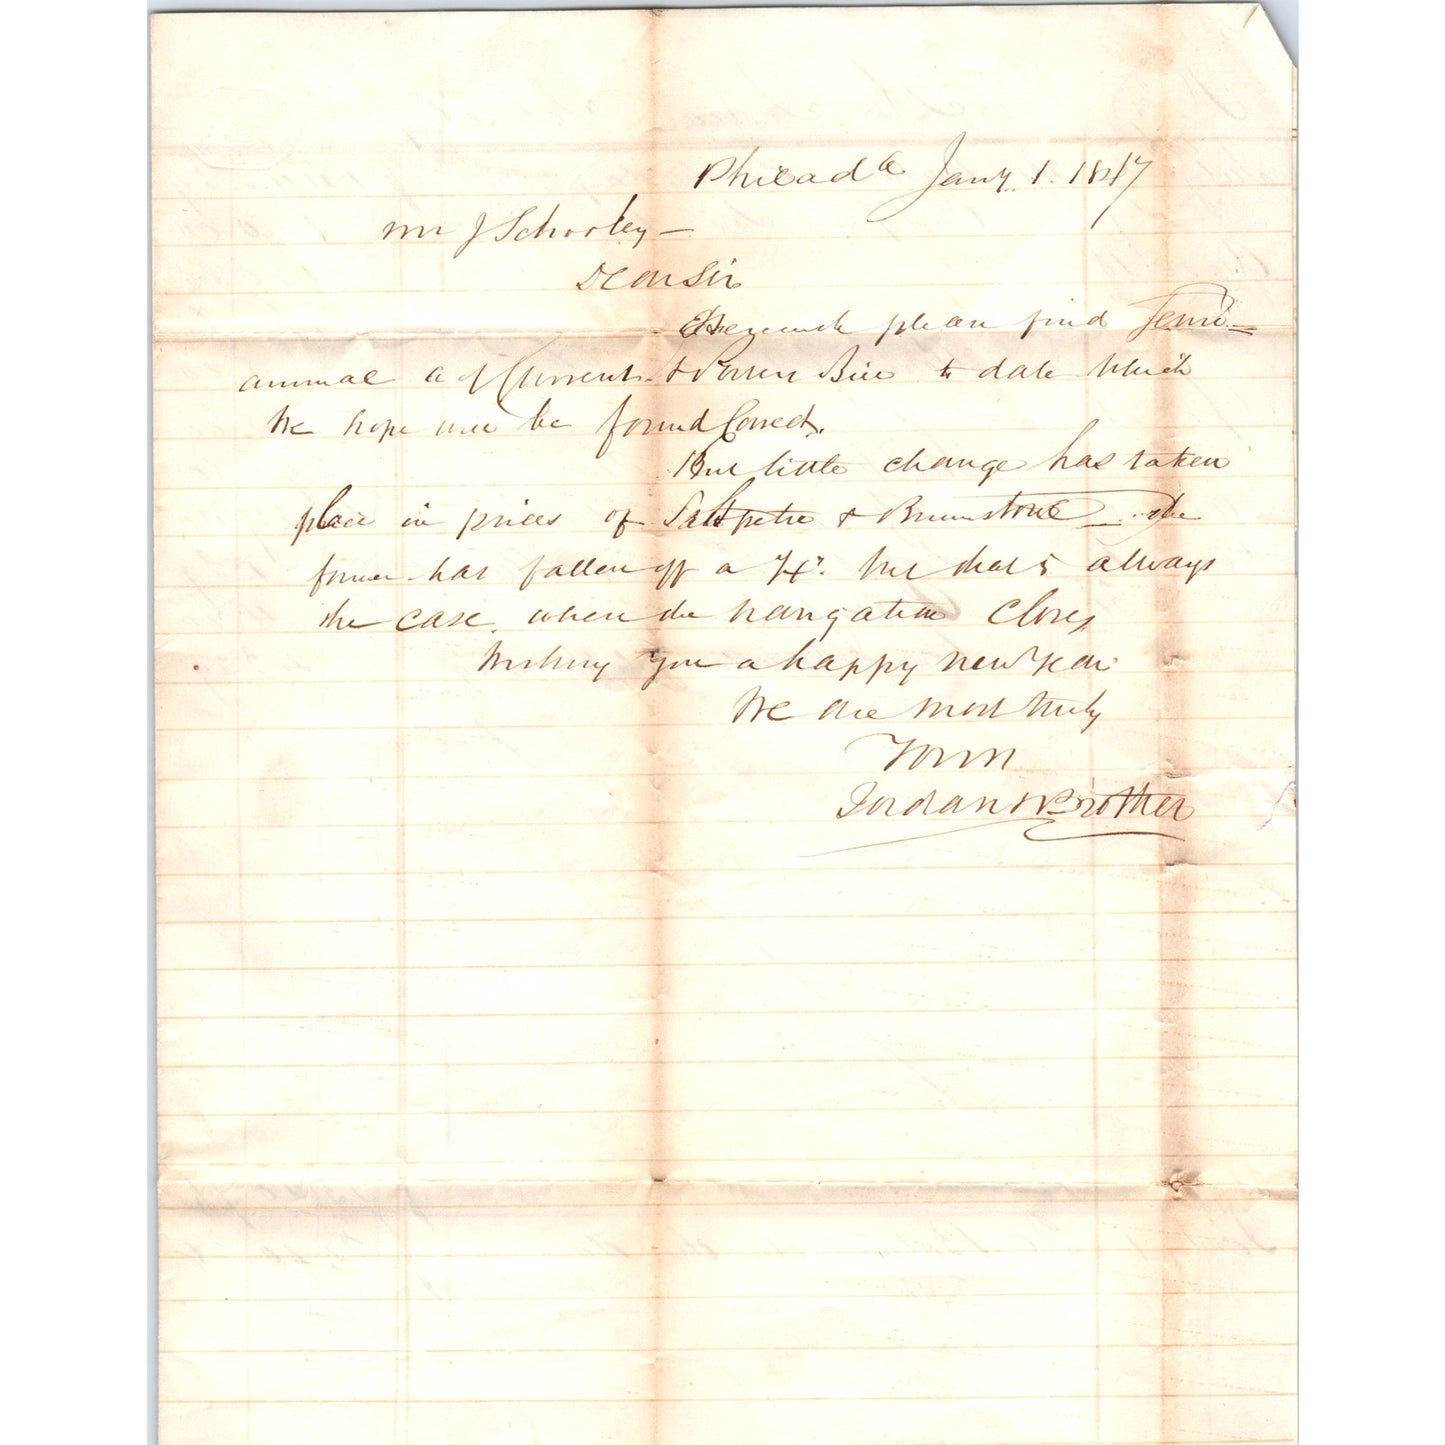 Philad<sup>a</sup> Jany. 1. 1847
Mr J Schooley —
Dear Sir
Herewith please find Semi-
annual a/ Current & Bill to date which
We hope will be found Correct.
But little change has taken
place in prices of Saltpetre & Brimstone — the
former has fallen off a ¼". but that is always
the case. when the navigation closes
Wishing you a happy new Year
We are most truly
Yours
Jordan & Brother